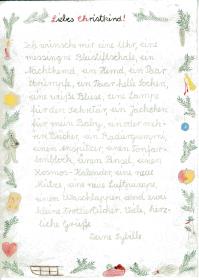 Liebes Christkind!
Ich wünsche mir eine Uhr, eine
messingne Bleistiftschale, ein
Nachthemd, ein Hemd, ein Paar
Strümpfe, ein Paar helle Socken,
eine weiße Bluse, eine Lampe
für den Sekretär, ein Jäckchen
für mein Baby, ein oder meh-
Bücher, ein Radiergummi,
einen Anspitzer, einen
einen Pinsel, einen
Kosmos-Kalender, eine neue
Mütze, eine neue Luftpumpe,
einen Waschlappen und zwei
kleine Viele, herz-
liche Grüße
Deine Sybille